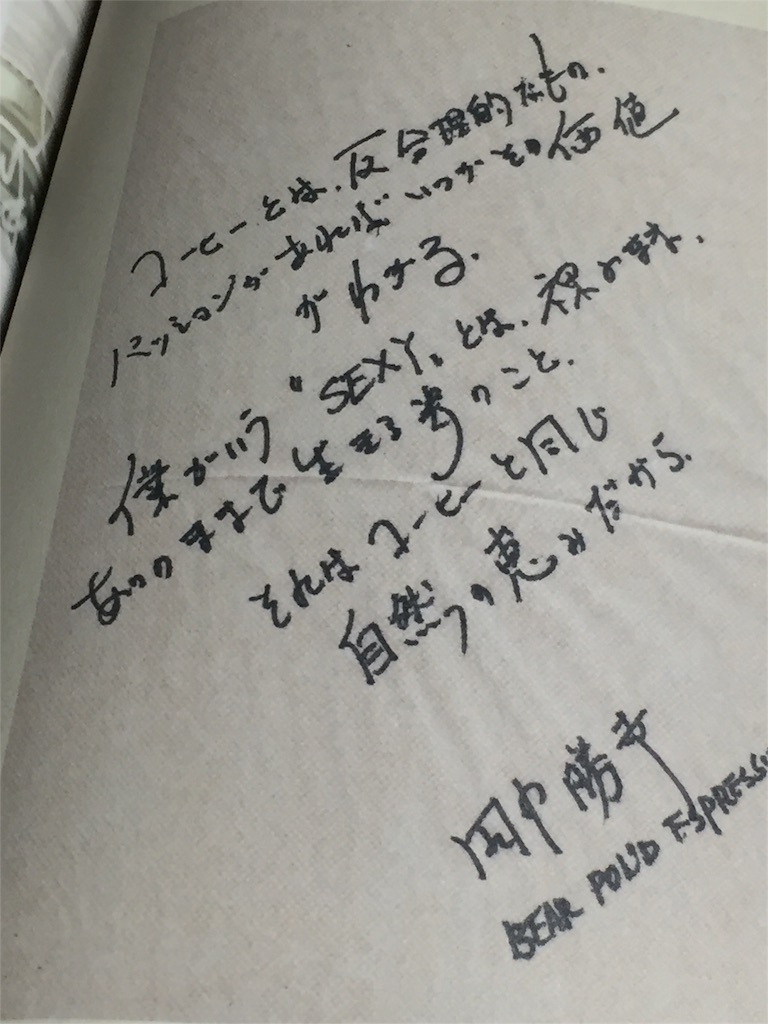 コーヒーとは、反合理的なもの.
パッションがあればいつかその価値
がわかる.
僕がいう“SEXY„とは、裸のまま、
ありのままで生きる者のこと.
それはコーヒーと同じ
自然の恵みだから.
田中勝幸
BEAR POND ESPRESSO